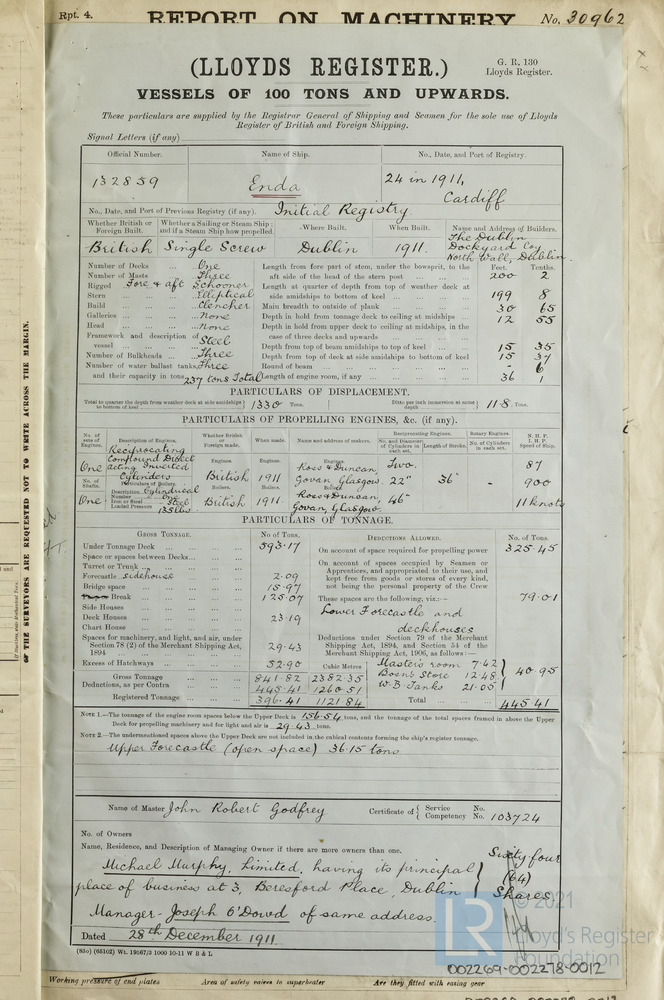 Rpt. 4.
REPORT ON MACHINERY
No. 30962
(LLOYDS REGISTER.)
G. R. 130
Lloyds Register.
VESSELS OF 100 TONS AND UPWARDS.
These particulars are supplied by the Registrar General of Shipping and Seamen for the sole use of Lloyds
Register of British and Foreign Shipping.
Signal Letters (if any)
Official Number. Name of Ship. No., Date, and Port of Registry.
132859 Enda 24 in 1911, Cardiff
No., Date, and Port of Previous Registry (if any). Initial Registry
Whether British or Foreign Built. Whether a Sailing or Steam Ship; and if a Steam Ship how propelled. Where Built. When Built. Name and Address of Builders.
British Single Screw Dublin 1911. The Dublin Dockyard Coy North Wall, Dublin.
Number of Decks ... One
Number of Masts ... Three
Rigged Fore & aft Schooner
Stern ... Elliptical
Build ... Clencher
Galleries ... None
Head ... None
Framework and description of vessel ... Steel
Number of Bulkheads ... Three
Number of water ballast tanks, Three
and their capacity in tons 237 tons Total
Feet. Tenths.
Length from fore part of stem, under the bowsprit, to the aft side of the head of the stern post 200 2
Length at quarter of depth from top of weather deck at side amidships to bottom of keel 199 8
Main breadth to outside of plank 30 65
Depth in hold from tonnage deck to ceiling at midships 12 55
Depth in hold from upper deck to ceiling at midships, in the case of three decks and upwards
Depth from top of beam amidships to top of keel 15 35
Depth from top of deck at side amidships to bottom of keel 15 37
Round of beam - 6
Length of engine room, if any 36 1
PARTICULARS OF DISPLACEMENT.
Total to quarter the depth from weather deck at side amidships to bottom of keel 1330 Tons. Ditto per inch immersion at same depth 11·8 Tons.
PARTICULARS OF PROPELLING ENGINES, &c. (if any).
No. of sets of Engines. Description of Engines. Whether British or Foreign made. When made. Name and address of makers. Reciprocating Engines. Rotary Engines. N. H. P.
I. H. P.
Speed of Ship.
No. and Diameter of Cylinders in each set. Length of Stroke. No. of Cylinders in each set.
One Reciprocating Compound Direct acting Inverted Cylinders
Engines. British Engines. 1911 Engines. Ross & Duncan, Govan, Glasgow. Two. 22" 46" 36" - 87
900
11 knots
No. of Shafts. Particulars of Boilers.
One Description Cylindrical
Number One
Iron or Steel Steel
Loaded Pressure 135 lbs
Boilers. British Boilers. 1911. Boilers. Ross & Duncan, Govan, Glasgow.
PARTICULARS OF TONNAGE.
GROSS TONNAGE. No. of Tons.
Under Tonnage Deck ... 593·17
Space or spaces between Decks ...
Turret or Trunk ...
Forecastle sidehouse 2·09
Bridge space ... 15·97
Break ... 125·07
Side Houses
Deck Houses ... 23·19
Chart House
Spaces for machinery, and light, and air, under Section 78 (2) of the Merchant Shipping Act, 1894 29·43
Excess of Hatchways ... 52·90 Cubic Metres
Gross Tonnage 841·82 2382·35
Deductions, as per Contra 445·41 1260·51
Registered Tonnage 396·41 1121·84
DEDUCTIONS ALLOWED. No. of Tons.
On account of space required for propelling power 325·45
On account of spaces occupied by Seamen or Apprentices, and appropriated to their use, and kept free from goods or stores of every kind, not being the personal property of the Crew 79·01
These spaces are the following, viz.:—
Lower Forecastle and deckhouses
Deductions under Section 79 of the Merchant Shipping Act, 1894, and Section 54 of the Merchant Shipping Act, 1906, as follows:—
Master's room 7·42
Bosn's Store 12·48
W.B. Tanks 21·05
40·95
Total ... 445·41
NOTE 1.—The tonnage of the engine room spaces below the Upper Deck is 156·54 tons, and the tonnage of the total spaces framed in above the Upper
Deck for propelling machinery and for light and air is 29·43 tons.
NOTE 2.—The undermentioned spaces above the Upper Deck are not included in the cubical contents forming the ship's register tonnage.
Upper Forecastle (open space) 36·15 tons
Name of Master John Robert Godfrey Certificate of { Service No.
Competency No. 103724
No. of Owners
Name, Residence, and Description of Managing Owner if there are more owners than one.
Michael Murphy, Limited, having its principal
place of business at 3, Beresford Place, Dublin
Sixty four
(64)
Shares
Manager - Joseph O'Dowd of same address.
Dated 28th December 1911.
(85o) (65102) Wt. 19167/3 1000 10-11 W B & L
LR
© 2021
Lloyd's Register
Foundation
002269-002278-0012
Working pressure of end plates Area of safety valves to superheater Are they fitted with easing gear
OF THE SURVEYORS ARE REQUESTED NOT TO WRITE ACROSS THE MARGIN.